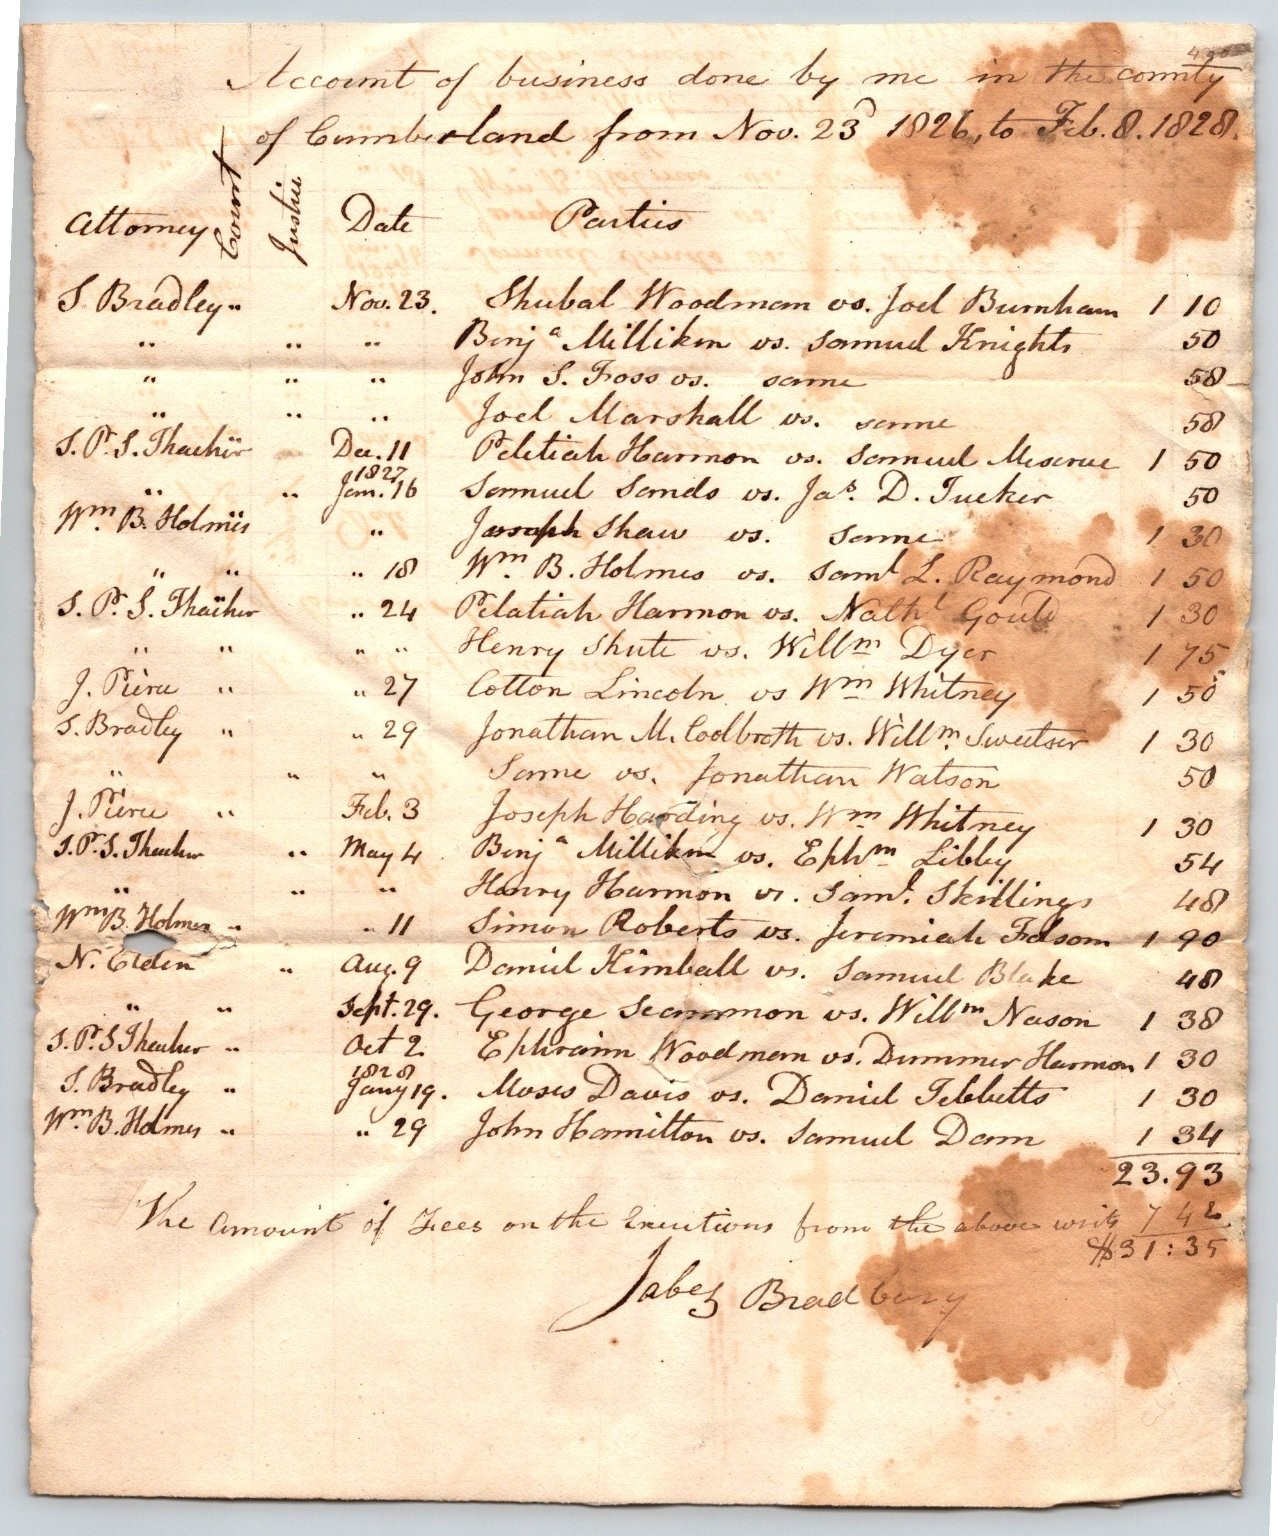 Account of business done by me in the county
of Cumberland from Nov. 23d 1826, to Feb. 8. 1828.
Attorney Court Justice Date Parties
S. Bradley " Nov. 23. Shubal Woodman vs. Joel Burnham 1 10
" " " Benja Milliken vs. Samuel Knights 50
" " " John S. Foss vs. same 58
" " " Joel Marshall vs. same 58
S. P. S. Thacher " Dec. 11 Pelitiah Harmon vs. Samuel Meserve 1 50
1827
" " Jan. 16 Samuel Sands vs. Jas. D. Tucker 50
Wm. B. Holmes " " Joseph Shaw vs. same 1 30
" " " 18 Wm. B. Holmes vs. Saml L. Raymond 1 50
S. P. S. Thacher " " 24 Pelatiah Harmon vs. Nathl Gould 1 30
" " " " Henry Shute vs. Willm Dyer 1 75
J. Pierce " " 27 Cotton Lincoln vs Wm Whitney 1 50
S. Bradley " " 29 Jonathan M. Coolbroth vs. Willm. Sweetser 1 30
" " " Same vs. Jonathan Watson 50
J. Pierce " Feb. 3 Joseph Harding vs. Wm Whitney 1 30
S. P. S. Thacher " May 4 Benja Milliken vs. Ephm Libby 54
" " " Henry Harmon vs. Saml. Skillings 48
Wm B. Holmes " " 11 Simon Roberts vs. Jeremiah Folsom 1 90
N. Elden " Aug. 9 Daniel Kimball vs. Samuel Blake 48
" " Sept. 29. George Scammon vs. Willm Nason 1 38
S. P. S Thacher " Oct 2 Ephraim Woodman vs. Dummer Harmon 1 30
1828
S. Bradley " Jany 19. Moses Davis vs. Daniel Tebbetts 1 30
Wm. B. Holmes " " 29 John Hamilton vs. Samuel Dam 1 34
23.93
The amount of Fees on the Executions from the above writs 7 42
$31:35
Jabez Bradbury